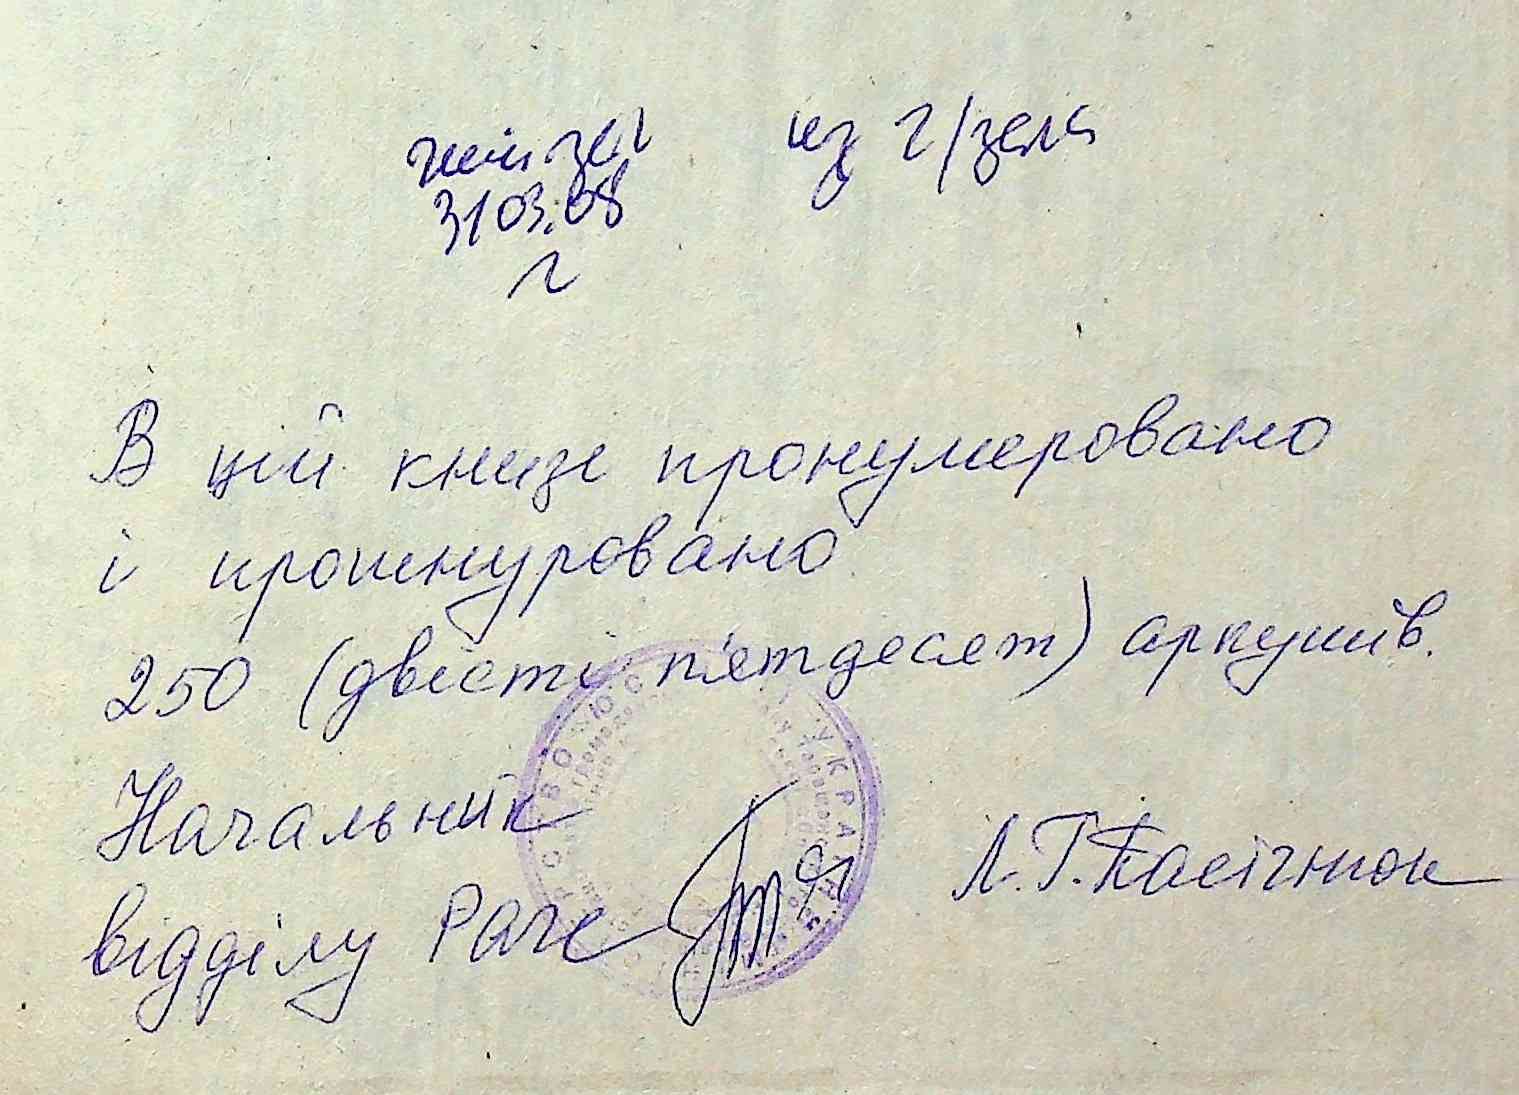 из г/зала
31 03.08
г
В цій книзі пронумеровано
і прошнуровано
250 (двісті п'ятдесят) аркушів.
Начальник
відділу Рагс Л.Г. Пасічнюк
УКРАЇН